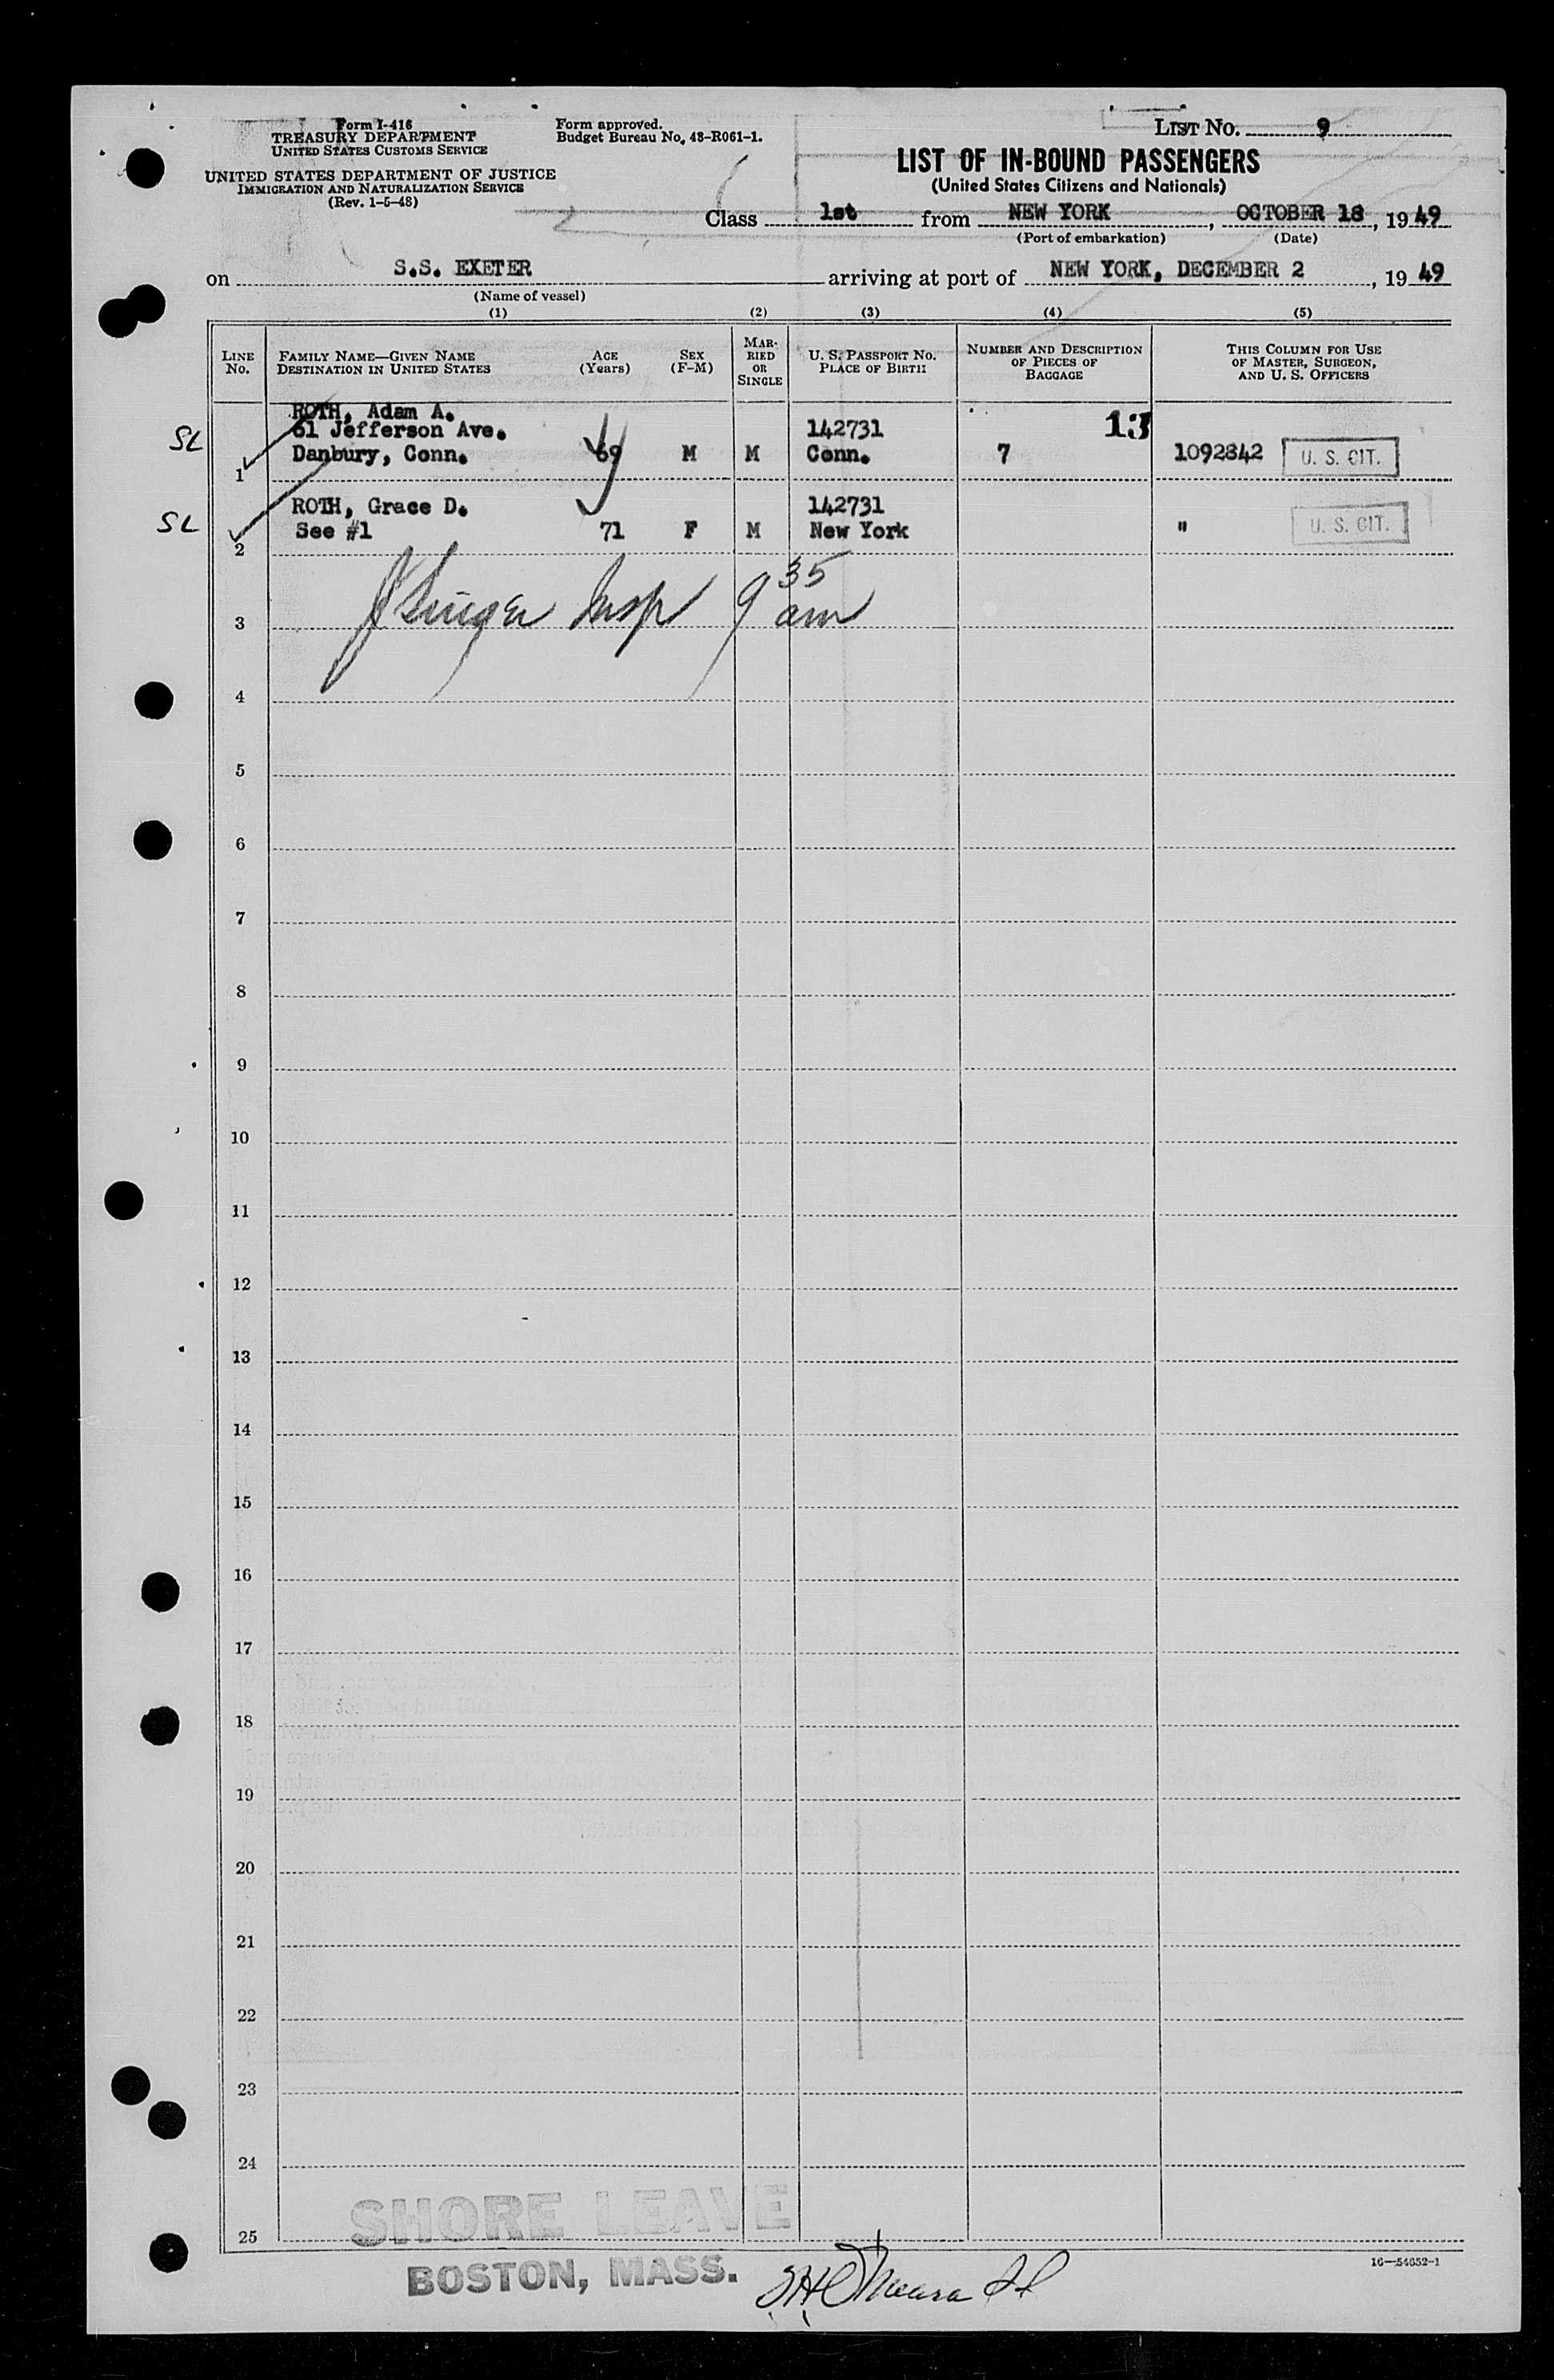 Form I-416
TREASURY DEPARTMENT
UNITED STATES CUSTOMS SERVICE
UNITED STATES DEPARTMENT OF JUSTICE
IMMIGRATION AND NATURALIZATION SERVICE
(Rev. 1-5-48)
Form approved.
Budget Bureau No. 43-R061-1.
LIST No. 9
LIST OF IN-BOUND PASSENGERS
(United States Citizens and Nationals)
Class 1st from NEW YORK, OCTOBER 18, 1949
(Port of embarkation) (Date)
on S.S. EXETER arriving at port of NEW YORK, DECEMBER 2, 1949
(Name of vessel)
(1) (2) (3) (4) (5)
LINE No.
FAMILY NAME—GIVEN NAME
DESTINATION IN UNITED STATES
AGE (Years)
SEX (F-M)
MARRIED OR SINGLE
U. S. PASSPORT NO.
PLACE OF BIRTH
NUMBER AND DESCRIPTION OF PIECES OF BAGGAGE
THIS COLUMN FOR USE OF MASTER, SURGEON, AND U. S. OFFICERS
ROTH, Adam A.
61 Jefferson Ave. 142731 13
SL 1 Danbury, Conn. 69 M M Conn. 7 1092842 U. S. CIT.
ROTH, Grace D. 142731
SL 2 See #1 71 F M New York " U. S. CIT.
3 Insp 9 35 am
4
5
6
7
8
9
10
11
12
13
14
15
16
17
18
19
20
21
22
23
24
25
SHORE LEAVE
BOSTON, MASS.
16—54652-1